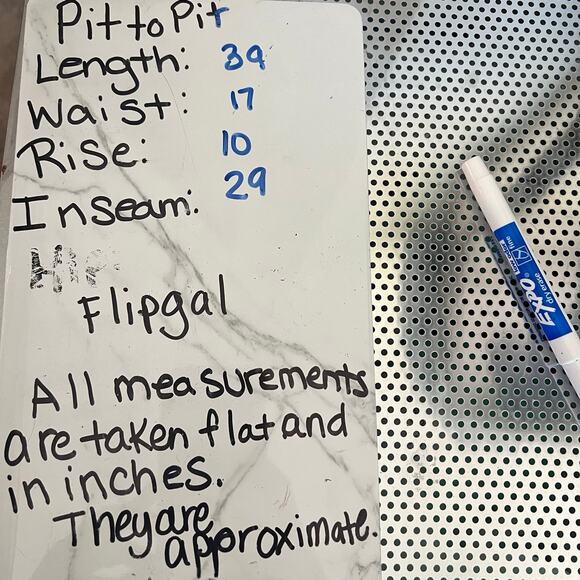 Pit to Pit
Length: 39
Waist: 17
Rise: 10
Inseam: 29
Hip:
Flipgal
All measurements
are taken flat and
in inches.
They are
approximate.
EXPO
dry erase
fine